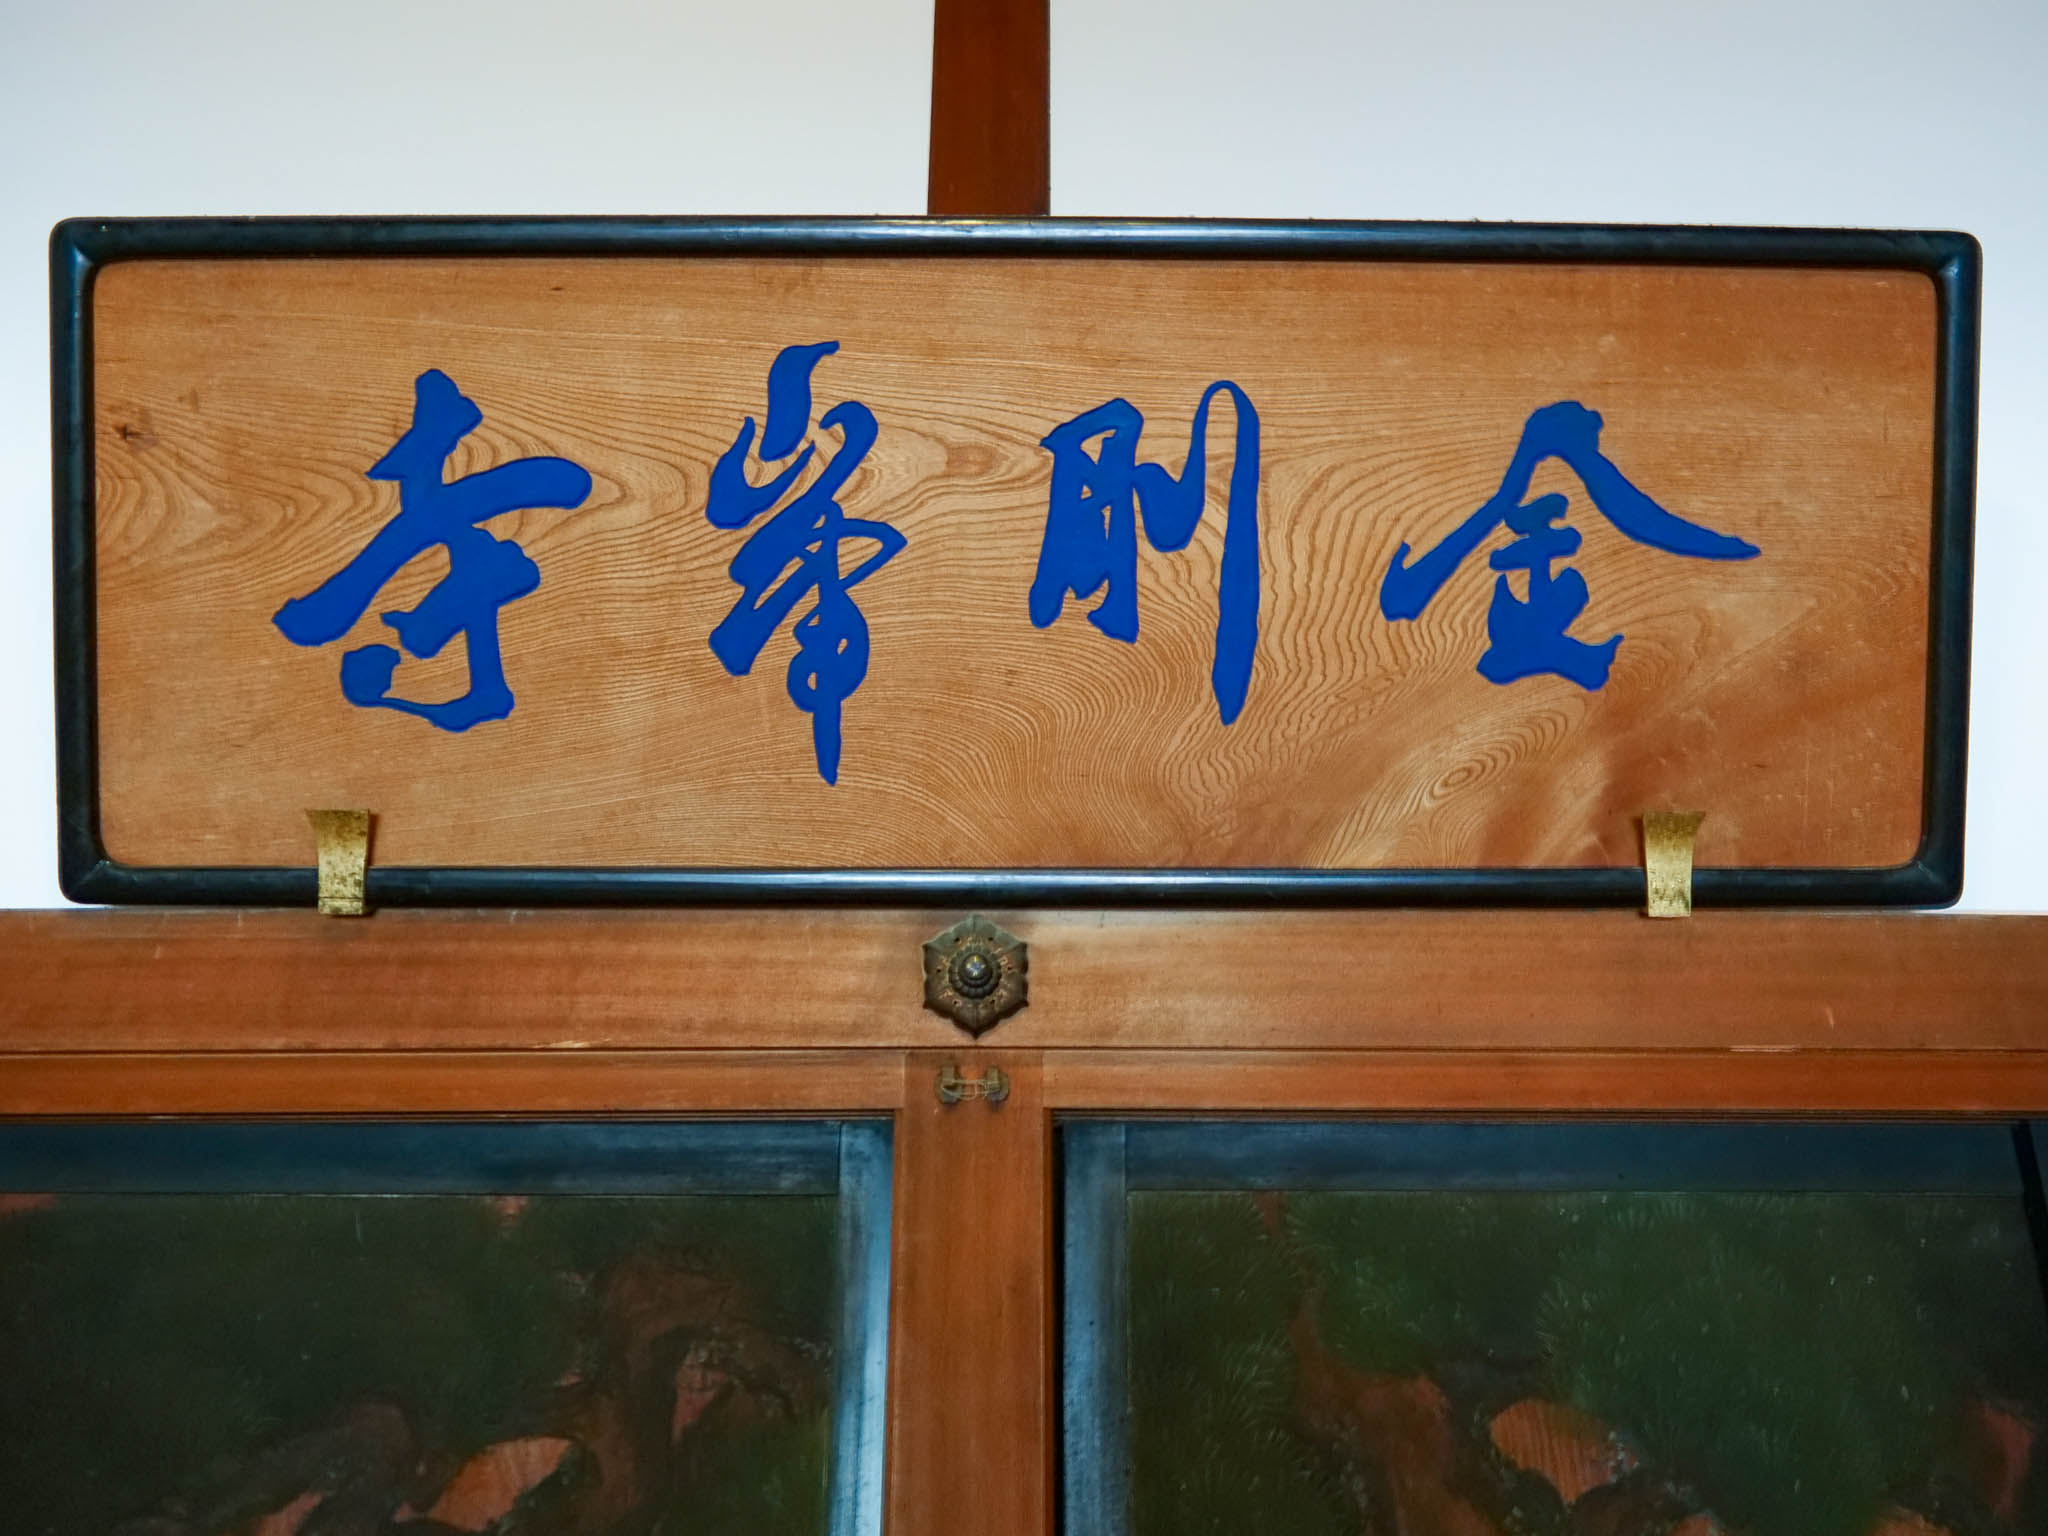 金剛峯寺